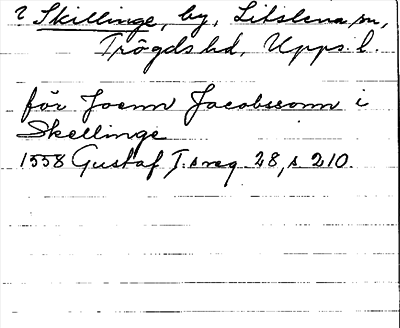 ? Skillinge, by, Litslena sn,
Trögds hd, Upps. l.
för Joenn Jacobssonn i
Skellinge
1558 Gustaf I:s reg 28, s 210.